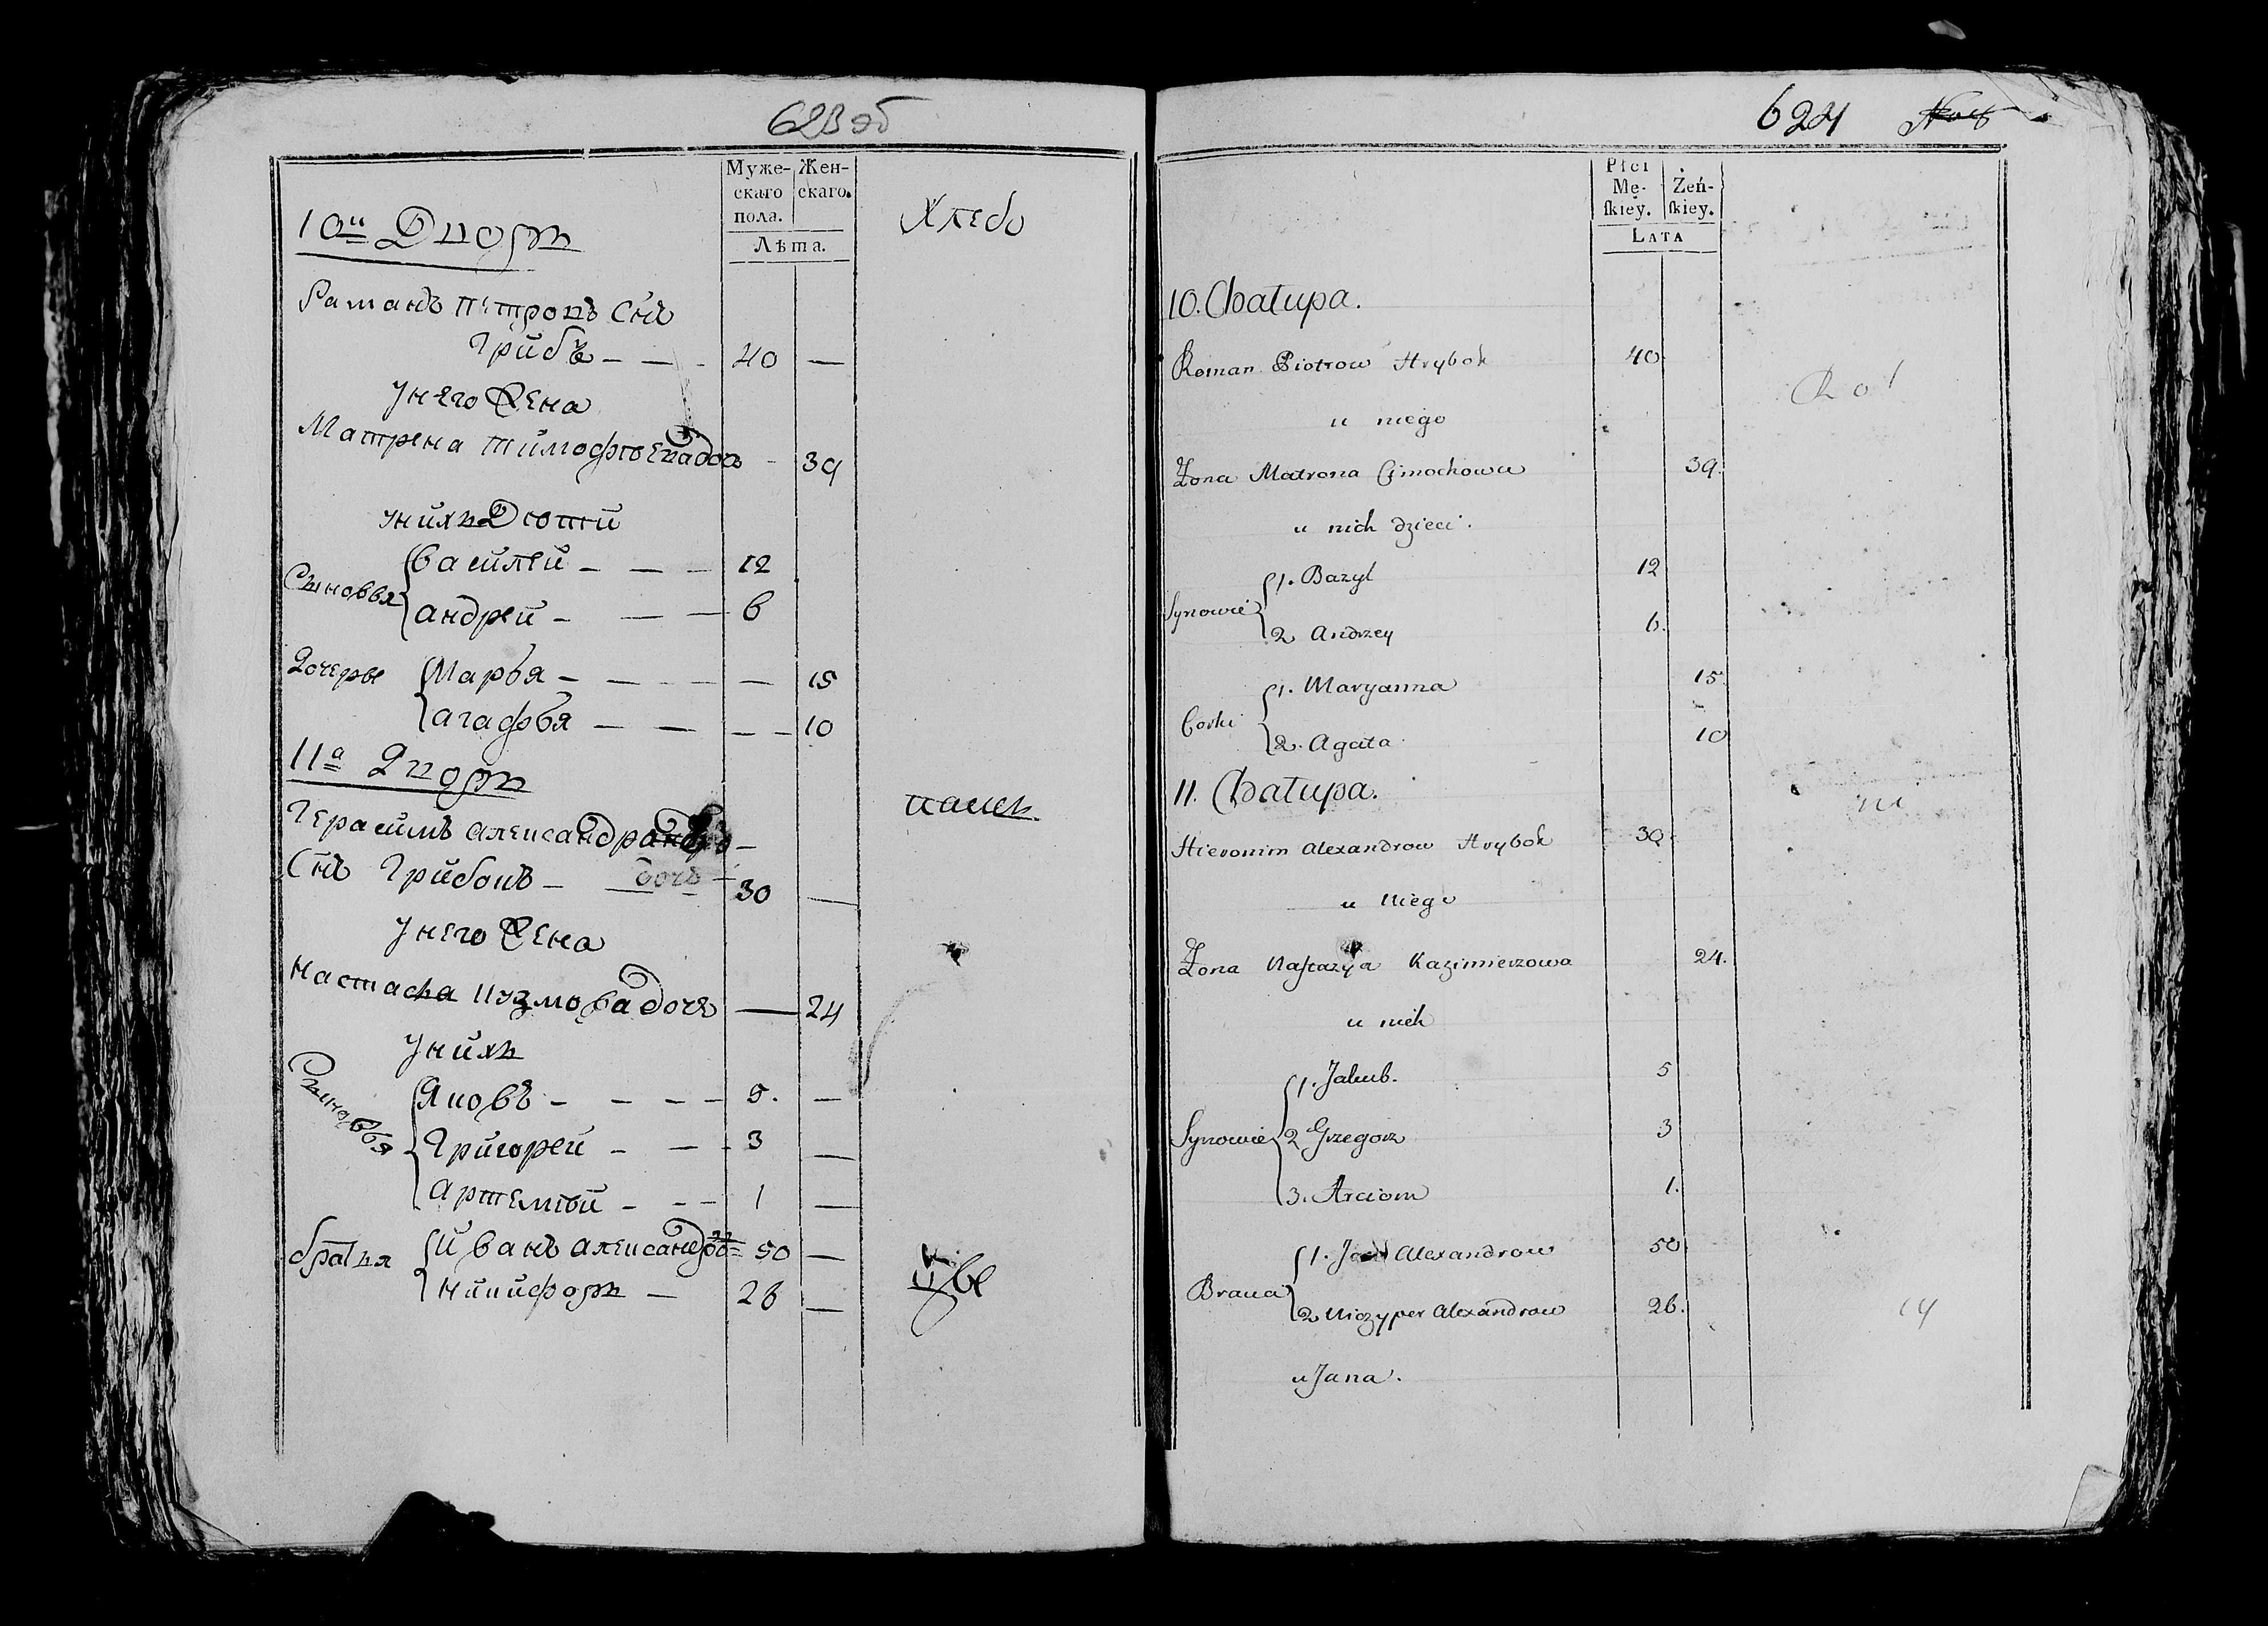 623 об
Муже-
скаго
пола.
Жен-
скаго.
Лѣта.
10й Дворъ
Хлебо
Раманъ Петровъ Снъ
Грибъ 40
У него Жена
Матрена Тимофѣева дочь 39
У нихъ Дѣти
Сыновья
Василей 12
Андрей 6
Дочерье
Марья 15
Агафья 10
11й Дворъ
пашец
Герасимъ Александровъ
Снъ Грибокъ 30
У него Жена
Настасья Кузмова дочь 24
У нихъ
Сыновья
Яковъ 5.
Григорей 3
Артемѣй 1
братья
Иванъ Александровъ 50
Никифоръ 26
624
Płci
Mę-
ſkiey.
Żeń-
ſkiey.
LATA
10. Chałupa.
Roman Piotrow Hrybok 40
u niego
Żona Matrona Cimochowa 39.
u nich dzieci.
Synowie
1. Bazyl 12
2 Andrzey 6.
Corki
1. Maryanna 15.
2. Agata 10
11. Chałupa.
Hieronim Alexandrow Hrybok 30.
u niego
Żona Naſtazya Kazimierzowa 24.
u nich
Synowie
1. Jakub. 5
2 Grzegorz 3
3. Arciom 1.
Bracia
1. Jan Alexandrow 50
2 Niczyper Alexandrow 26.
u Jana.